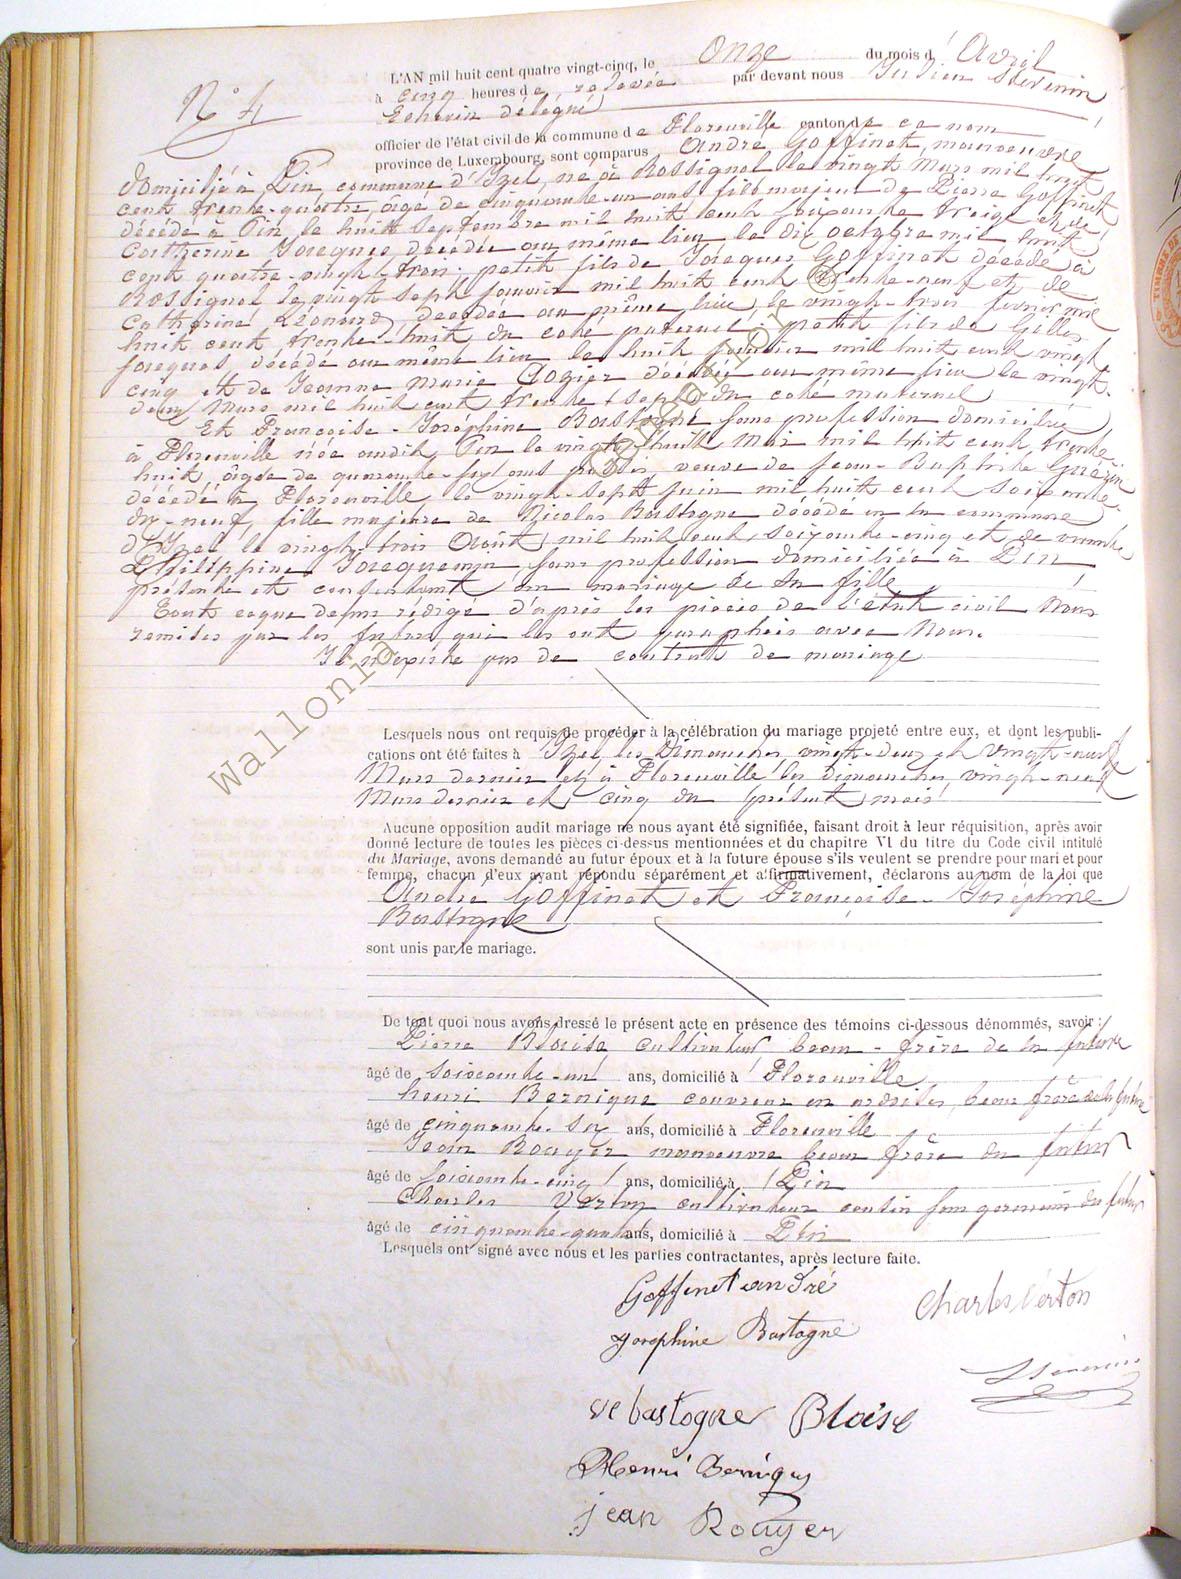 N° 4
L'AN mil huit cent quatre vingt-cinq, le Onze du mois d'Avril
à cinq heures de relevée par devant nous Julien Stévenin
Echevin délégué
officier de l'état civil de la commune de Florenville canton de ce nom
province de Luxembourg, sont comparus André Goffinet, manoeuvre
domicilié à Pin, commune d'Izel, né à Rossignol le vingt Mars mil huit
cent trente-quatre, âgé de cinquante-un ans fils majeur de Pierre Goffinet
décédé à Pin, le huit septembre mil huit cent soixante treize et de
Catherine Jacques, décédée au même lieu le dix octobre mil huit
cent quatre-vingt-trois; petit fils de Jacques Goffinet décédé à
Rossignol le vingt sept janvier mil huit cent trente-neuf et de
Catherine Léonard, décédée au même lieu le vingt-trois février mil
huit cent trente-huit du coté paternel; petit fils de Gilles
Jacques décédé au même lieu le huit janvier mil huit cent vingt
cinq et de Jeanne Marie décédée au même lieu le vingt
deux Mars mil huit cent trente sept du coté maternel
Et Françoise-Joséphine Bastogne sans profession domiciliée
à Florenville née audit Pin le vingt huit Mai mil huit cent trente
huit âgée de quarante-six ans passés, veuve de Jean-Baptiste
décédé à Florenville le vingt-sept juin mil huit cent soixante
dix-neuf, fille majeure de Nicolas Bastogne décédé en la commune
d'Izel le vingt-trois Août mil huit cent soixante-cinq et de
Philippine Jacquemin, sans profession domiciliée à Pin
présente et consentant au mariage de sa fille
Tout ceque dessus rédigé d'après les pièces de l'état civil Nous
remises par les futurs qui les ont paraphées avec Nous.
Il n'existe pas de contrat de mariage
Lesquels nous ont requis de procéder à la célébration du mariage projeté entre eux, et dont les publi-
cations ont été faites à Izel les Dimanches vingt-deux et vingt-neuf
Mars dernier et à Florenville les dimanches vingt-neuf
Mars dernier et cinq du présent mois
Aucune opposition audit mariage ne nous ayant été signifiée, faisant droit à leur réquisition, après avoir
donné lecture de toutes les pièces ci-dessus mentionnées et du chapitre VI du titre du Code civil intitulé
du Mariage, avons demandé au futur époux et à la future épouse s'ils veulent se prendre pour mari et pour
femme, chacun d'eux ayant répondu séparément et affirmativement, déclarons au nom de la loi que
André Goffinet et Françoise-Joséphine
Bastogne
sont unis par le mariage.
De tout quoi nous avons dressé le présent acte en présence des témoins ci-dessous dénommés, savoir :
Pierre Blaise cultivateur beau-frère de la future
âgé de soixante-un ans, domicilié à Florenville
Henri Bernique couvreur en ardoises, beau frère de la future
âgé de cinquante-six ans, domicilié à Florenville
Jean Rouyer manoeuvre beau frère du futur
âgé de soixante-cinq ans, domicilié à Pin
Charles Verton cultivateur cousin sous germain du futur
âgé de cinquante-quatre ans, domicilié à Pin
Lesquels ont signé avec nous et les parties contractantes, après lecture faite.
Goffinet andré
Charles Verton
Josephine Bastogne
J Stévenin
ve bastogne Blaise
Henri Bernique
jean Rouyer